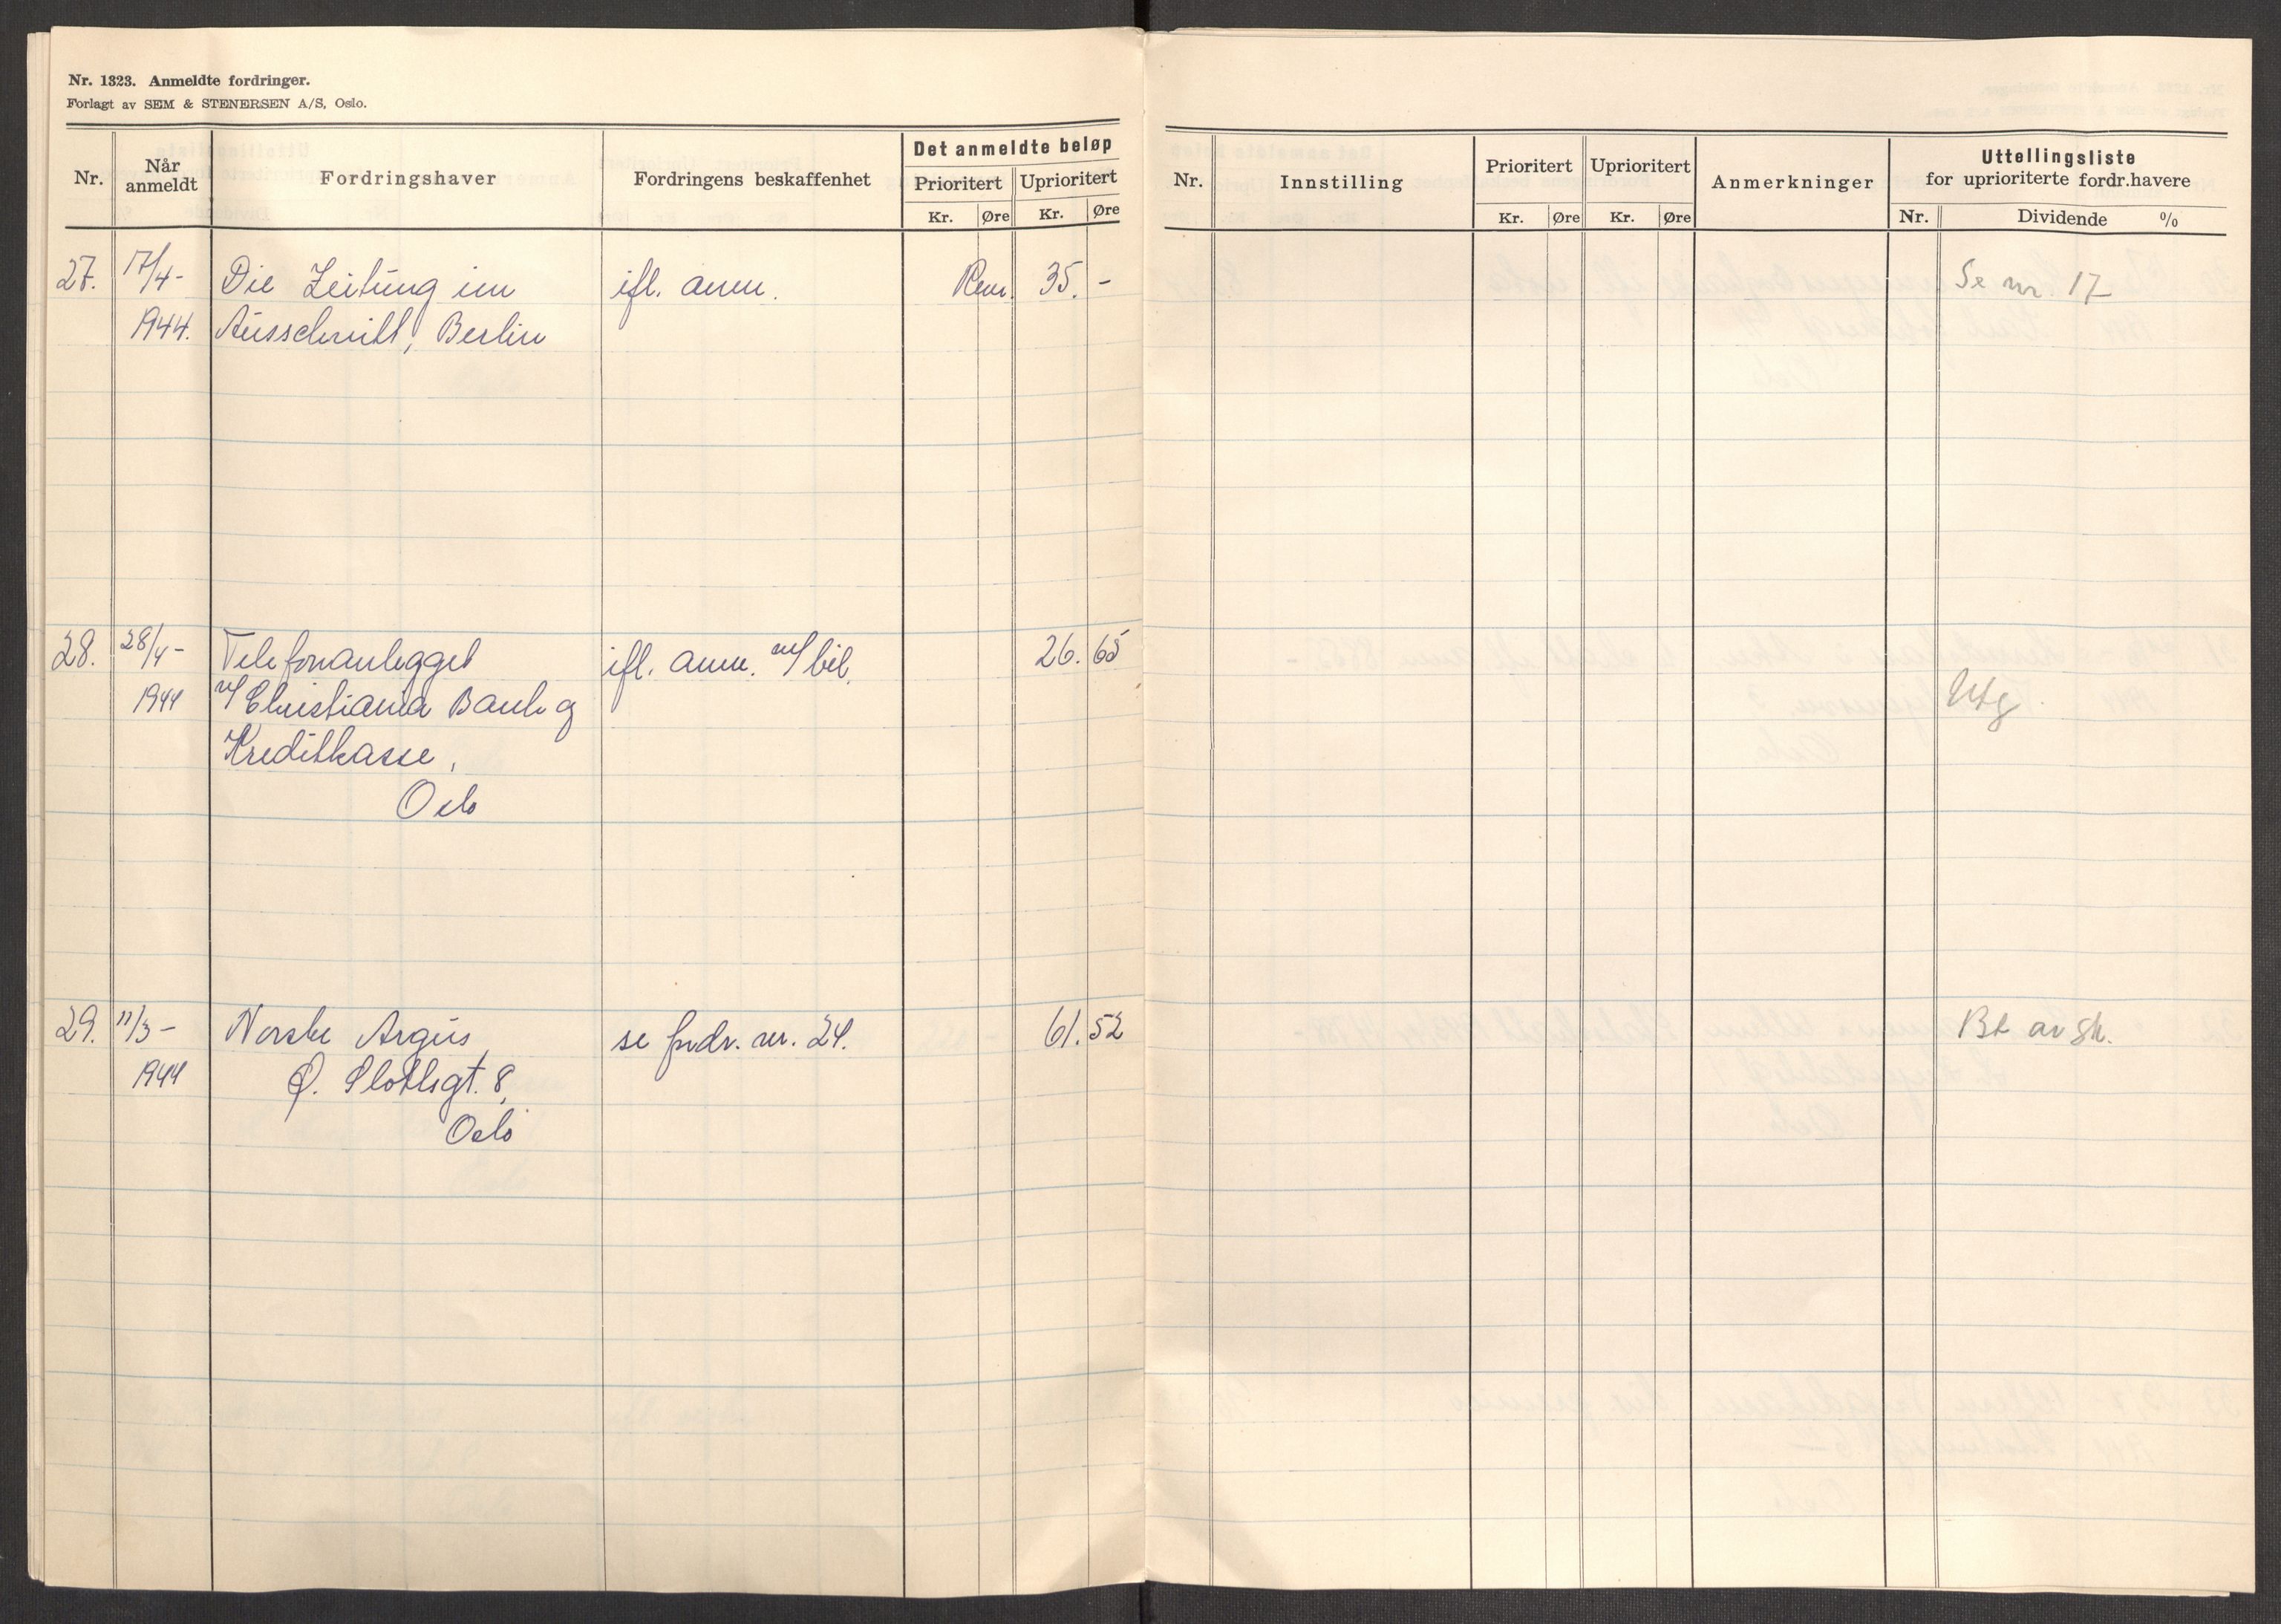 Nr. 1323. Anmeldte fordringer.
Forlagt av SEM & STENERSEN A/S, Oslo.
Nr. Når anmeldt Fordringshaver Fordringens beskaffenhet Det anmeldte beløp
Prioritert Uprioritert
Kr. Øre Kr. Øre
27. 17/4- Die Zeitung im ifl. anm. Rm. 35. -
1944. Ausschnitt, Berlin
28. 28/4- Telefonanlegget ifl. anm. m/ bil. 26. 65
1944 v/ Christiania Bank og
Kreditkasse,
Oslo
29. 11/3- Norske Argus, se fordr. nr. 24. 61. 52
1944 Ø. Slottsgt. 8,
Oslo
Nr. Innstilling Prioritert Uprioritert Anmerkninger Uttellingsliste
for uprioriterte fordr.havere
Kr. Øre Kr. Øre Nr. Dividende %
Se nr. 17
Utg
Bt av sk.